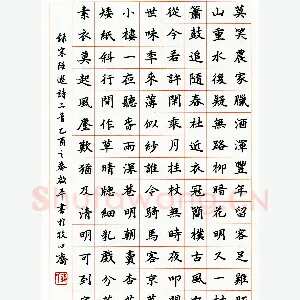 莫笑農家臘酒渾豐年留客足雞
山重水複疑無路柳暗花明又一
簫鼓追隨春社近衣冠簡樸古風
從今若許閒乘月拄杖無時夜叩
世味年來薄似紗誰令騎馬客京
小樓一夜聽春雨深巷明朝賣杏
矮紙斜行閒作草晴窗細乳戲分
素衣莫起風塵歎猶及清明可到
録宋陸遊詩二首乙酉之春啟平書於牧心齋